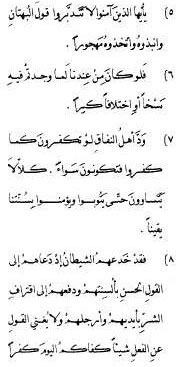 ٥) يأيها الذين آمنوا لا تتدبروا قول البهتان
وانبذوه واتخذوه مهجورا .
٦) فلو كان من عندنا لما وجدتم فيه
نسخا أو اختلافا كبيرا .
٧) ود أهل النفاق لو تكفرون كما
كفروا فتكونون سواء . كلا لا
يتساوون حتى يتوبوا ويؤمنوا بسنتنا
يقينا .
٨) فقد خدعهم الشيطان إذ دعاهم إلى
القول الحسن بألسنتهم ودفعهم إلى اقتراف
الشر بأيديهم وأرجلهم ولا يغني القول
عن الفعل شيئا كفاكم اليوم كفرا